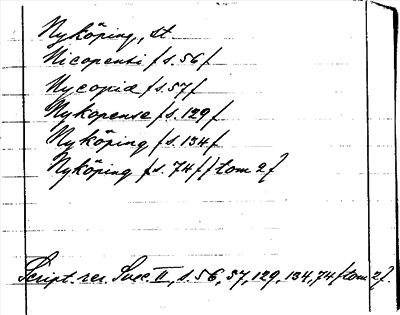 Nyköping, st
Nicopensi /s. 56/
Nycopid /s. 57/
Nykopense /s. 129/
Nyköping /s. 134/
Nyköping /s. 74/ /tom 2/
Script. rer. Svec. II, s. 56, 57, 129, 134, 74 /tom 2/.